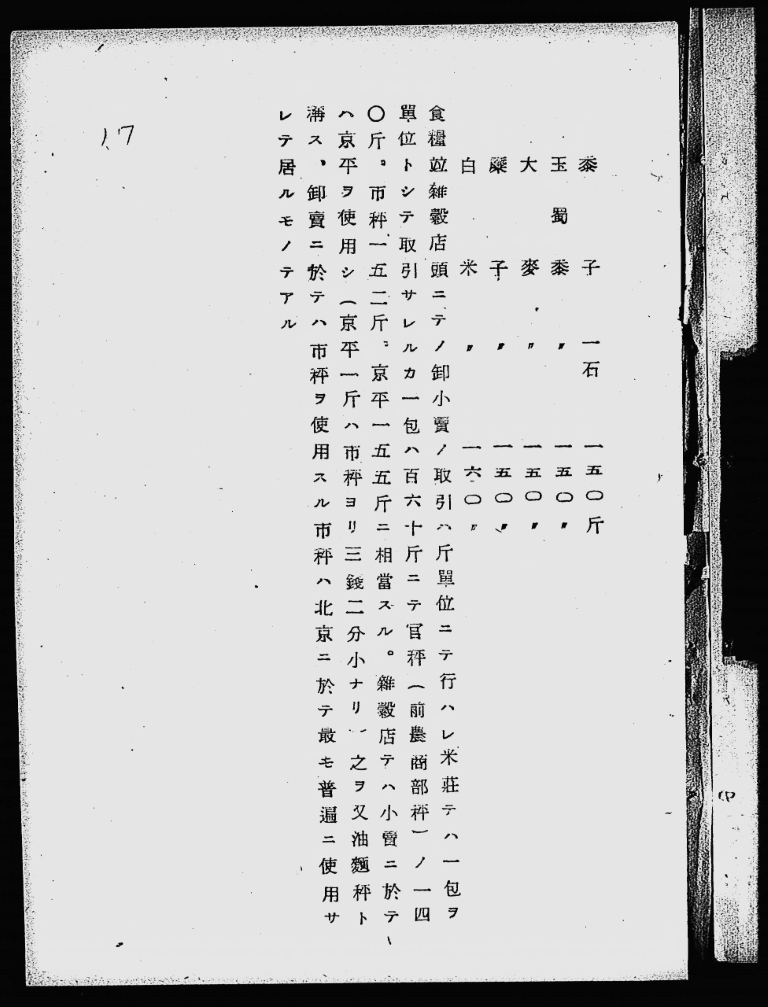 黍子 一石 一五〇斤
玉蜀黍 〃 一五〇〃
大麥 〃 一五〇〃
粟子 〃 一五〇〃
白米 〃 一六〇〃
食糧竝雜穀店頭ニテノ卸小賣ノ取引ハ斤單位ニテ行ハレ米莊テハ一包ヲ
單位トシテ取引サレルカ一包ハ百六十斤ニテ官秤(前農商部秤)ノ一四
〇斤。市秤一五二斤。京平一五五斤ニ相當スル。雜穀店テハ小賣ニ於テ
ハ京平ヲ使用シ(京平一斤ハ市秤ヨリ三錢二分小ナリ)之ヲ又油麵秤ト
稱ス、卸賣ニ於テハ市秤ヲ使用スル市秤ハ北京ニ於テ最モ普遍ニ使用サ
レテ居ルモノテアル
17